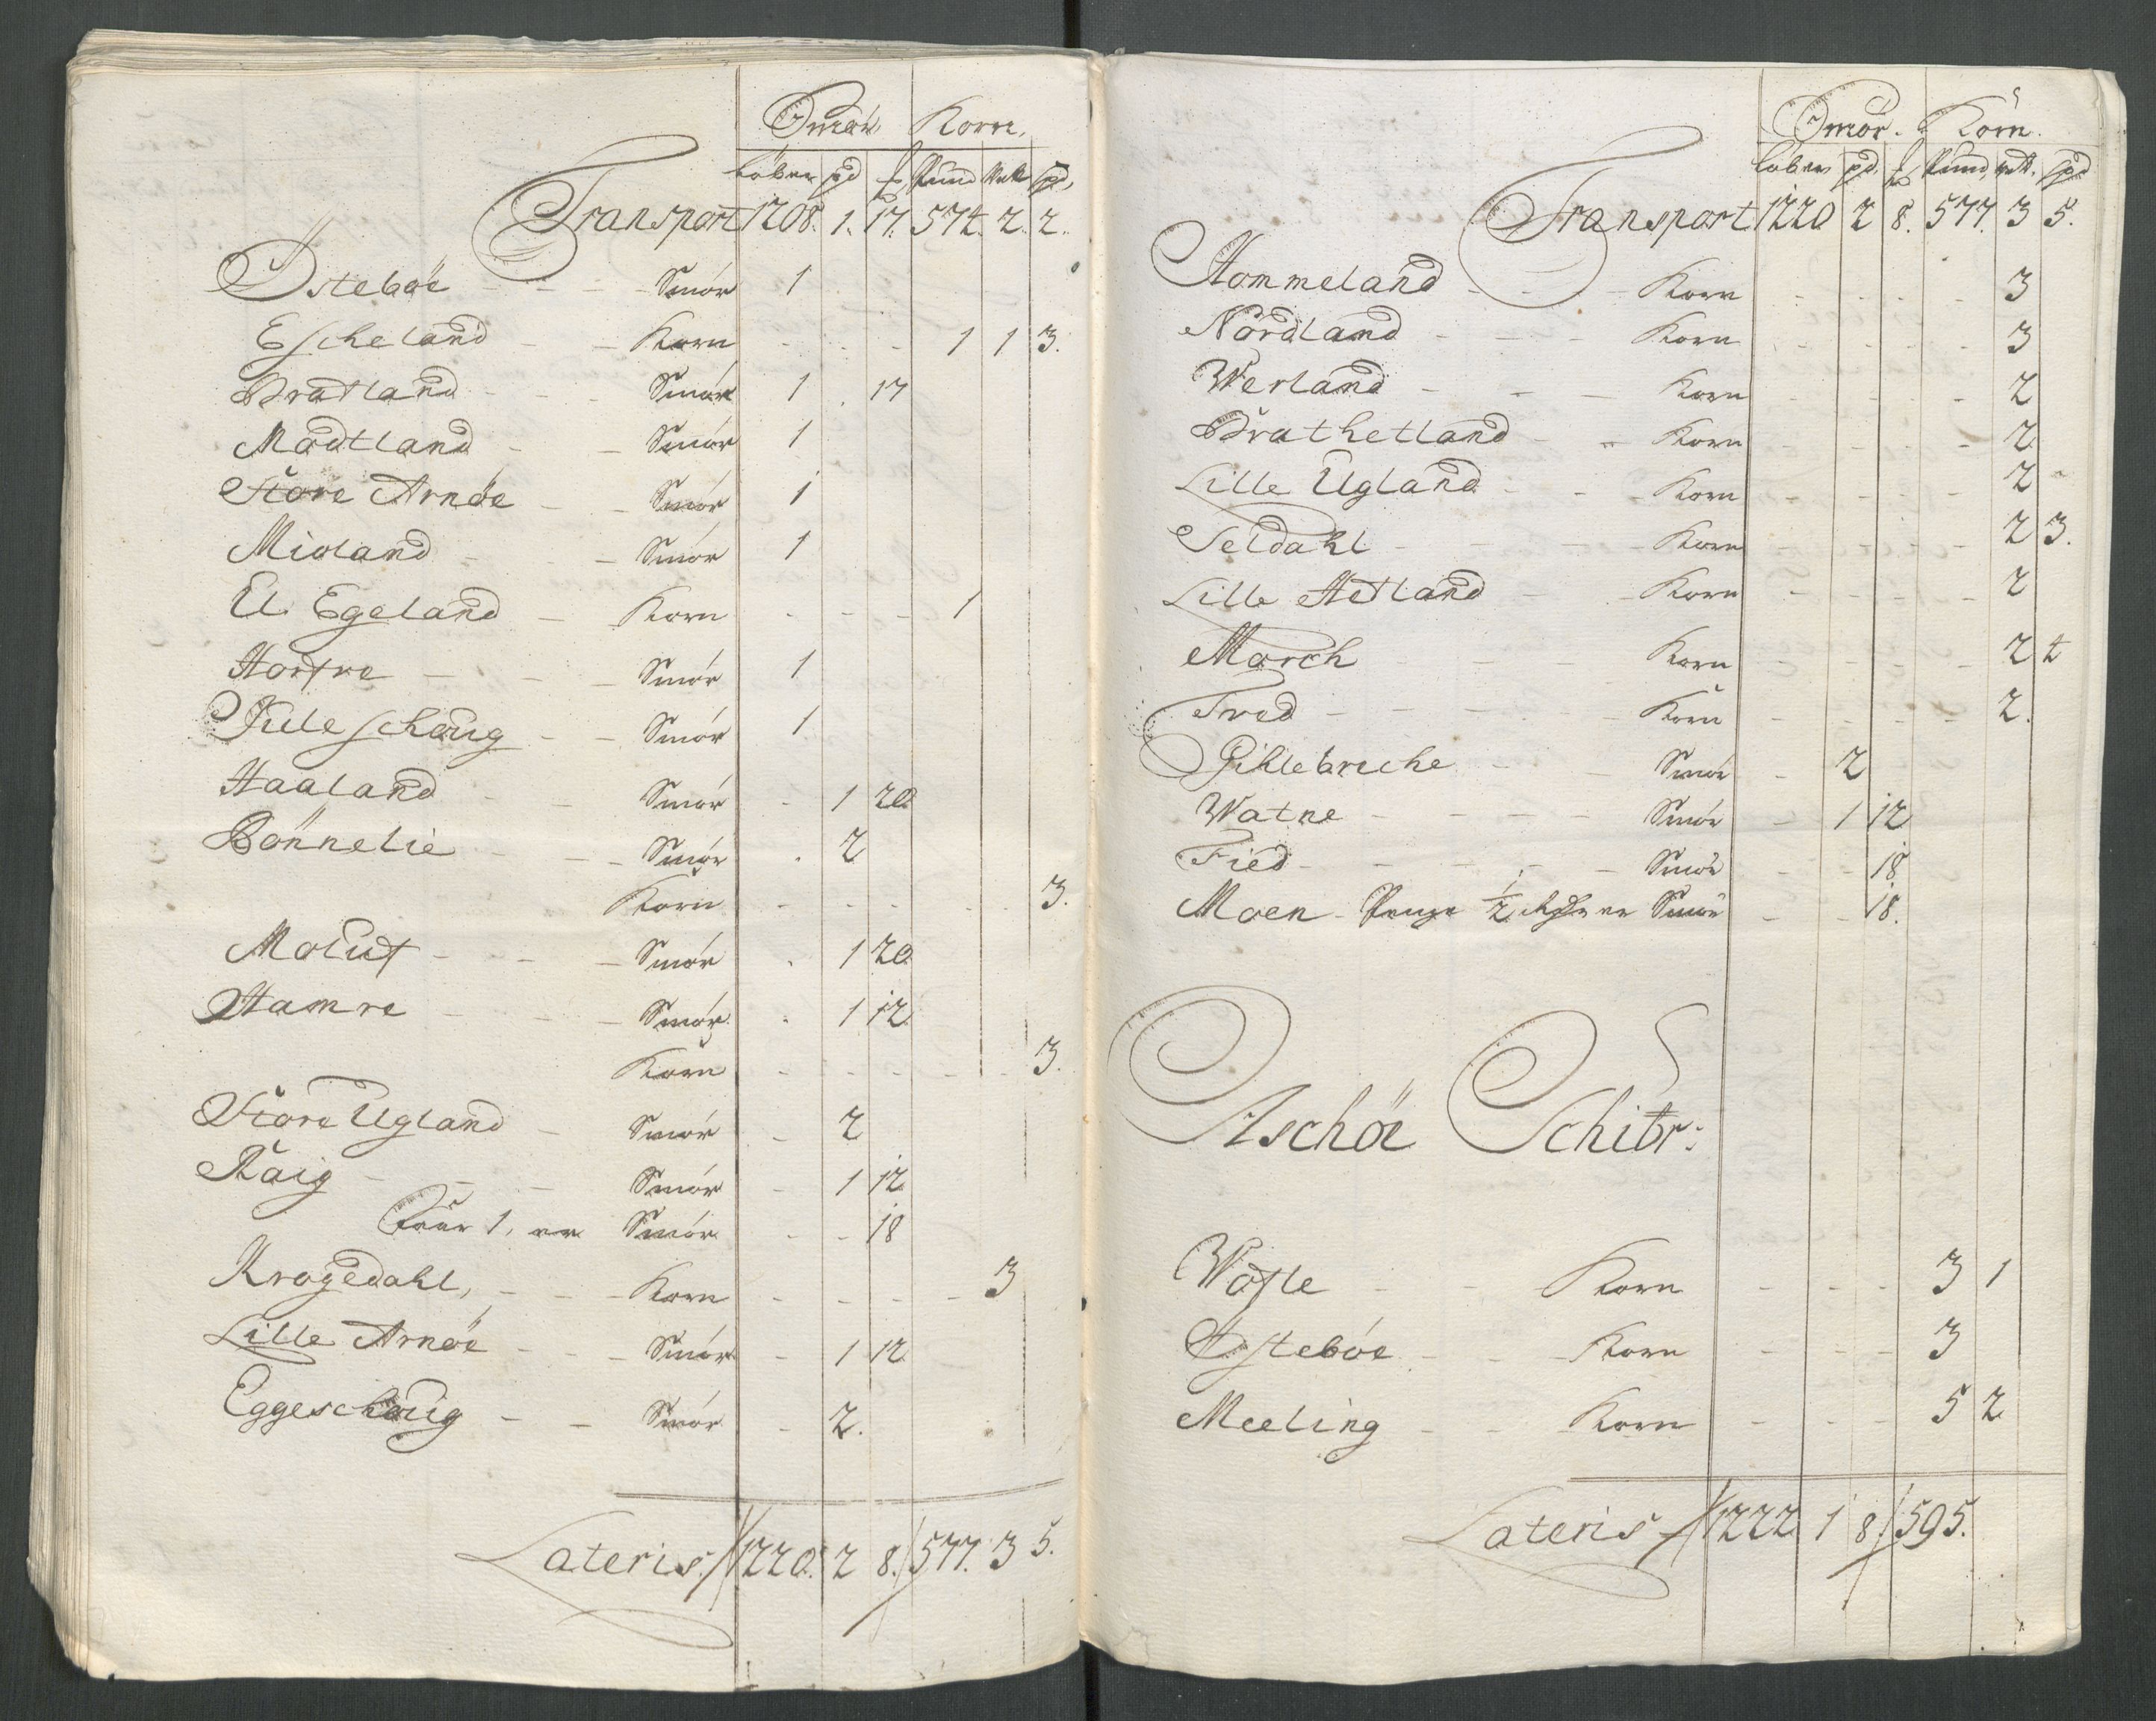 Smör Korn.
Löber pd £ Pund Vett. spd,
Transport 1208. 1. 17. 574. 2. 2.
Östeböe - - - Smör 1
Escheland - - Korn - - - 1 1 3.
Bratland - - - Smör 1 . 17
Mådtland - - Smör 1
Store Arnöe - - Smör 1
Midland - - - Smör 1
Egeland - Korn - - - 1
Smör 1
- - Smör 1
Haaland - - Smör - 1 20
Bönnelie - - - Smör . 2
Korn - - - - - 3.
Moluf - - - Smör . 1 20
Hamre - - - Smör . 1 12
Korn - - - - - 3.
Store Ugland - Smör - 2
Raig - - - Smör - 1 12
Faar 1, er Smör - - 18
Kragedahl, - - - Korn - - - - - 3
Lille Arnöe - - - Smör - 1 12
Eggeschoug - - Smör - 2.
Lateris 1220. 2 8. 577. 3 5.
Smör. Korn.
Löber pd. £ Pund, vett. spd
Transport 1220 2 8. 577. 3 5.
Hommeland - - - Korn - - - - 3
Nordland - - - Korn - - - - 3
Werland - - - Korn - - - - 2
Brathetland - - Korn - - - - 2
Lille Ugland - - - Korn - - - - 2
Seldahl - - - - Korn - - - - 2 3.
Lille Hetland - - Korn - - - - 2
March - - - Korn - - - - 2 4
Tred - - - - Korn - - - - 2.
Pihlebreche - - Smör - 2
Watne - - - - Smör - 1 12
Fied - - - - Smör - - 18
Moen - Penge ½ er Smör - - 18.
Aschöe Schibr:
Wasle - - Korn - - - 3 1
Östeböe - - - Korn - - - 3
Meeling - - Korn - - - 5 2
Lateris 1222 1 8 595.